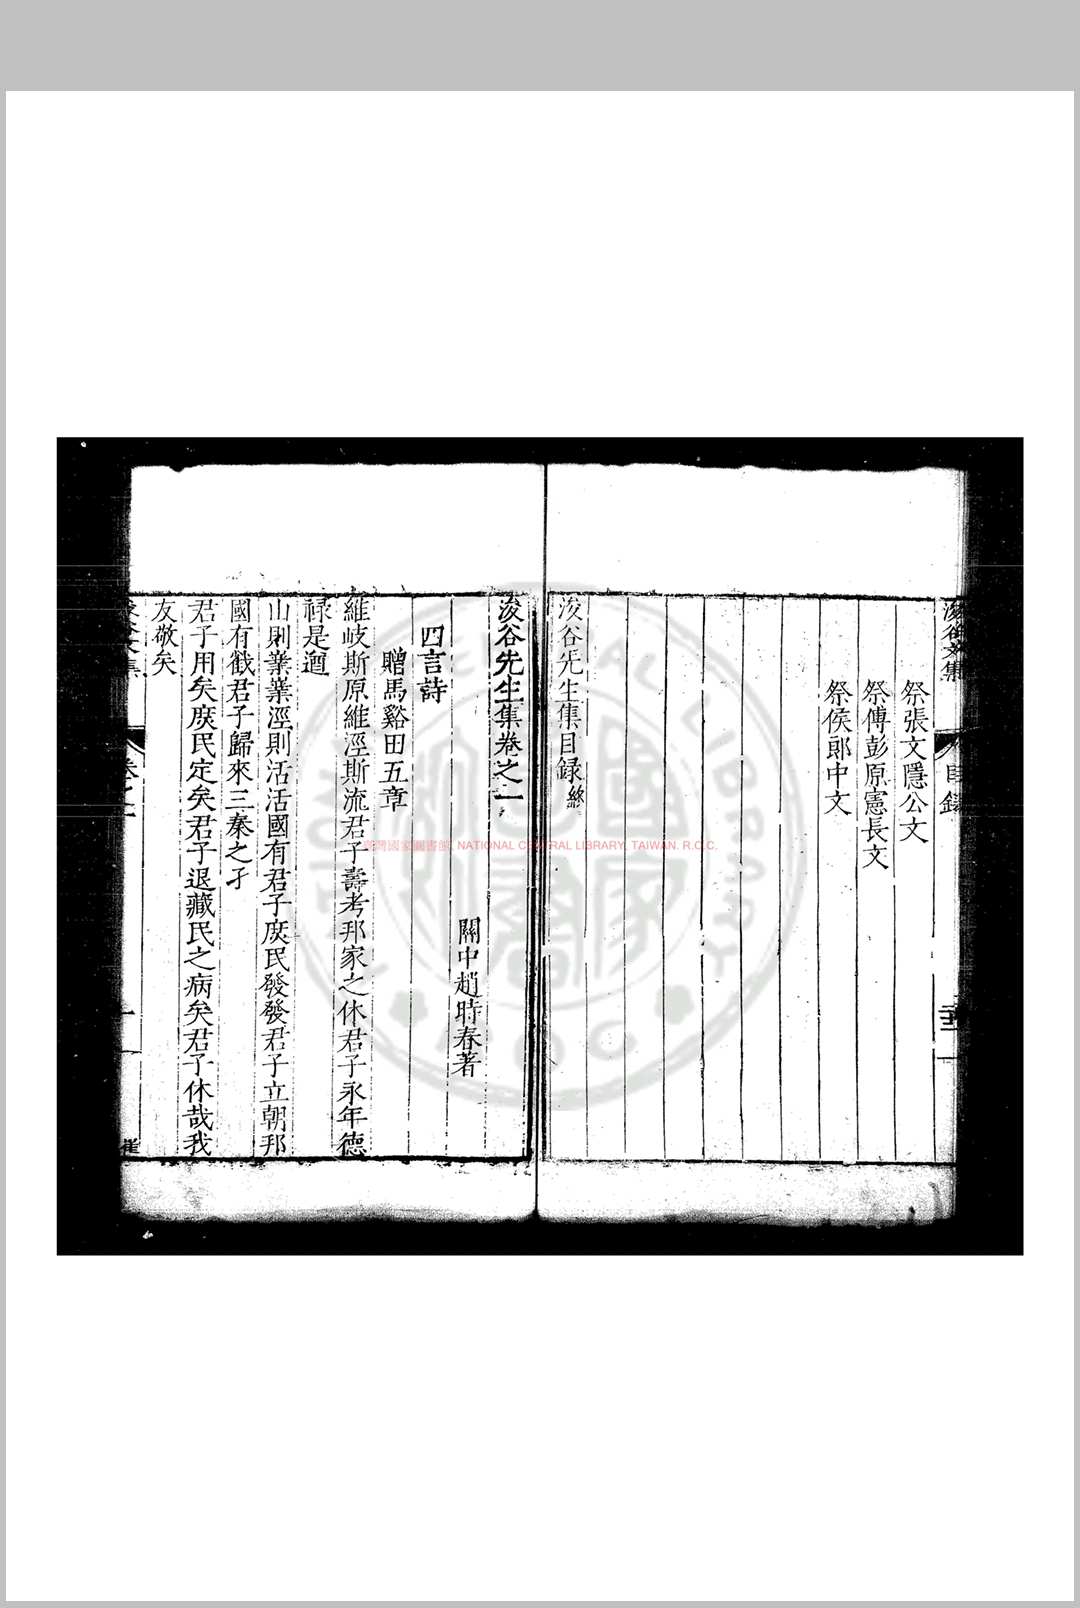 祭張文隱公文
祭傅彭原憲長文
祭侯郎中文
浚谷先生集目録終
浚谷先生集卷之一
關中趙時春著
四言詩
贈馬谿田五章
維岐斯原維涇斯流君子壽考邦家之休君子永年德
禄是遒
山則業業涇則活活國有君子庻民發發君子立朝邦
國有戳君子歸來三秦之孑
君子用矣庻民定矣君子退藏民之病矣君子休哉我
友敬矣
臺灣國家圖書館, NATIONAL CENTRAL LIBRARY, TAIWAN, R.O.C.